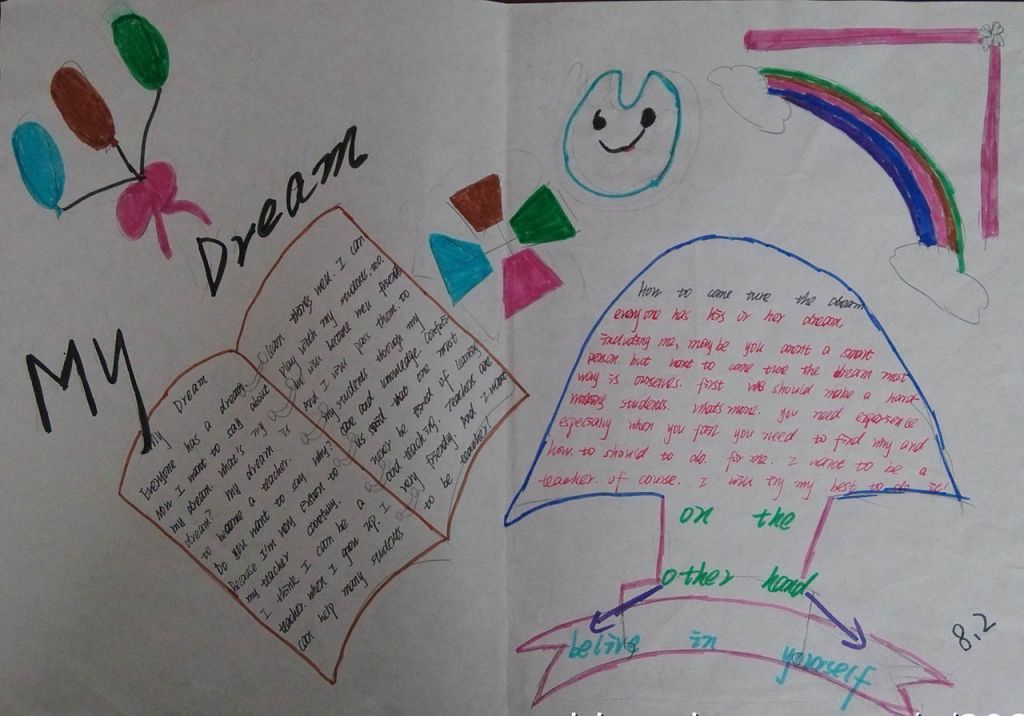 My Dream
My Dream
Everyone has a dream
Now I want to say about
my dream. what's my
dream? my dream is
to become a teacher
Do you want to say why?
Because I'm very
my teacher carefully.
I think I can be a
teacher. when I grow up. I
can help many students
learn things well. I can
play with my students. too.
we will become well friends
and I will pass them to
my students through my
and knowledge
it's said that one
never be tired of learning
and teaching. Teachers are
very friendly. And I want
to be teacher!
How to come ture the dream
everyone has his or her dream,
including me, maybe you arent a smart
person. but want to come ture the dream most
way is ourselves. first we should make a hard
students. whats more. you need experience
especially when you fail you need to find why and
how. to should to do. for me. I want to be a
teacher. of course. I will try my best to do it!
on the
other hand
belive in yourself
8.2